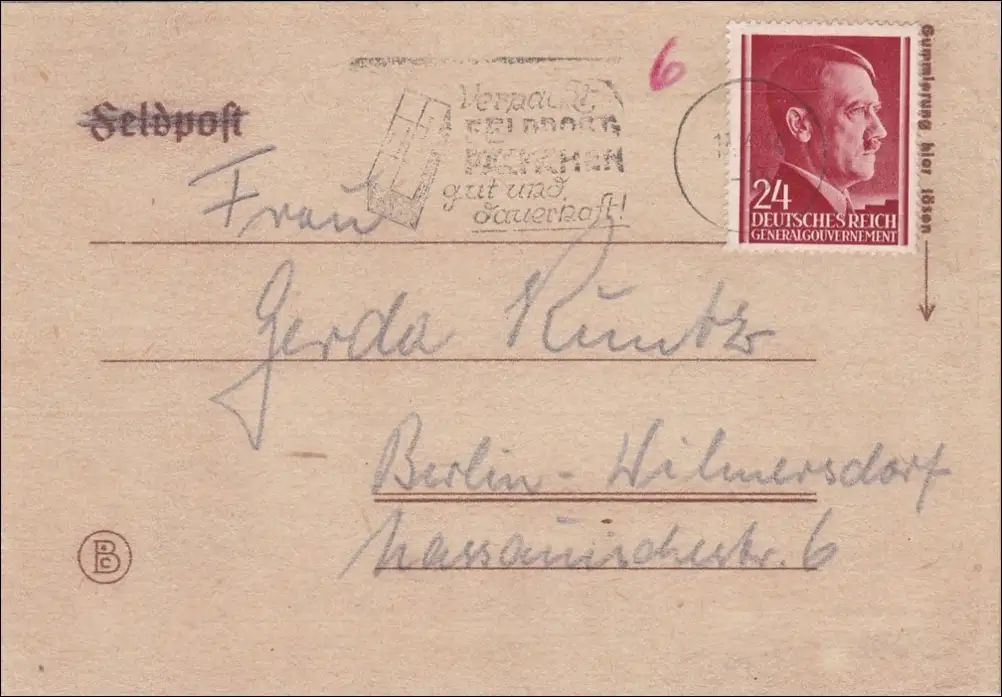 Feldpost
Verpackt
FELDPOST
PÄCKCHEN
gut und
dauerhaft!
6
24
DEUTSCHES REICH
GENERALGOUVERNEMENT
Gummierung hier lösen
Frau
Gerda Kuntz
Berlin-Wilmersdorf
Nassauischestr. 6
B